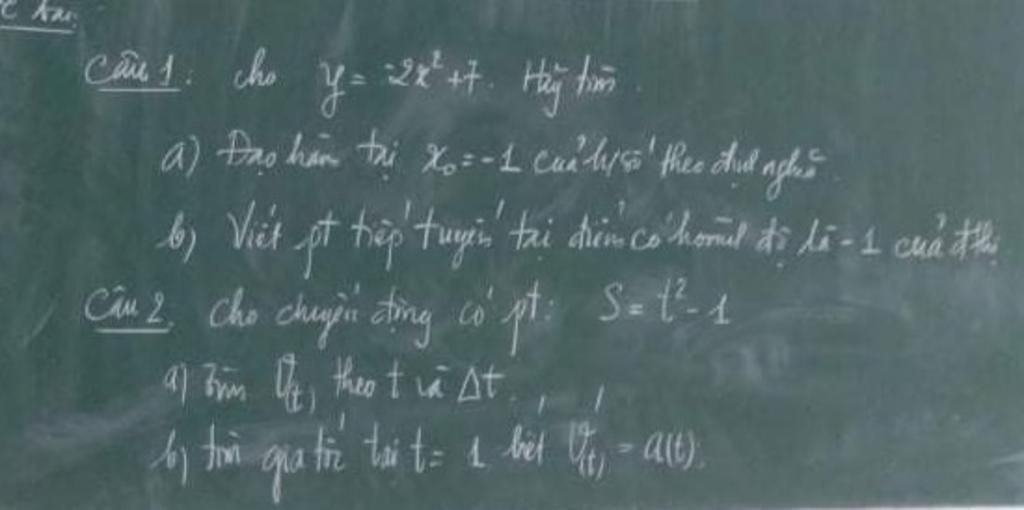 Câu 1: cho y = -2x² + 7. Hãy tìm.
a) Đạo hàm tại x₀ = -1 của h/số theo định nghĩa.
b) Viết pt tiếp tuyến tại điểm có hoành độ là -1 của đthị
Câu 2. Cho chuyển động có pt: S = t² - 1
a) Tìm V(t) theo t và Δt.
b) tìm gia tốc tại t = 1 biết V'(t) = a(t).